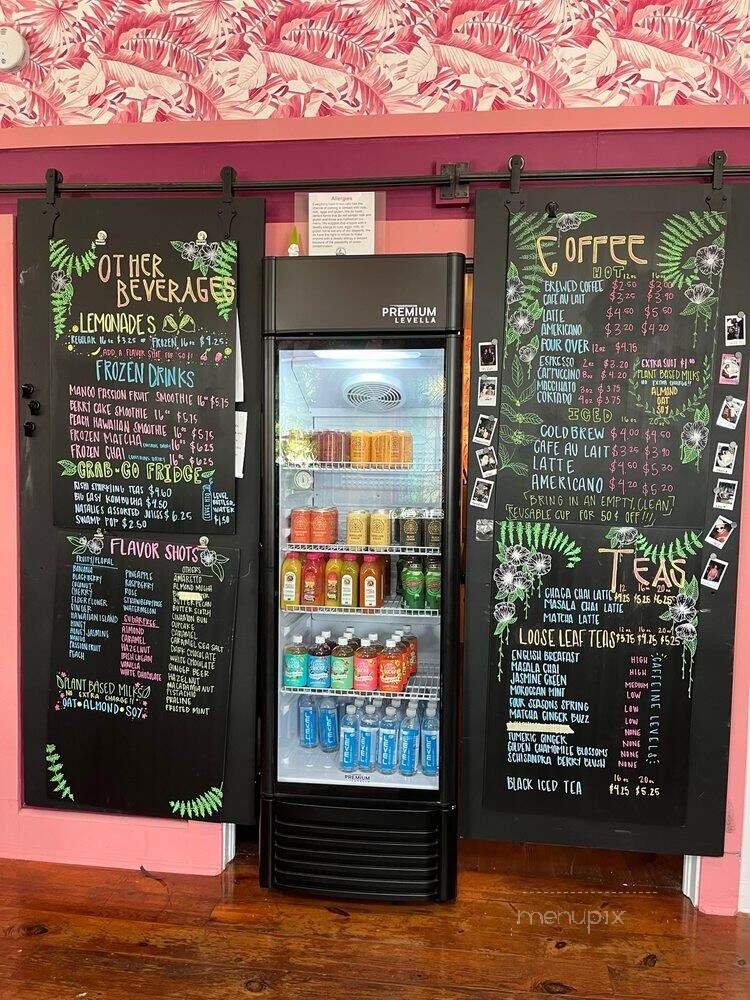 Allergies
OTHER
BEVERAGES
LEMONADES
REGULAR 16oz $3.25 or FROZEN, 16oz $4.25
ADD A FLAVOR SHOT FOR 50¢!
FROZEN DRINKS
MANGO PASSION FRUIT SMOOTHIE 16oz $5.75
BERRY CAKE SMOOTHIE 16oz $5.75
PEACH HAWAIIAN SMOOTHIE 16oz $5.75
FROZEN MATCHA (CONTAINS DAIRY) 16oz $6.25
FROZEN CHAI (CONTAINS DAIRY) 16oz $6.25
GRAB-GO FRIDGE
RISHI SPARKLING TEAS $4.60
BIG EASY KOMBUCHA $4.50
NATALIES ASSORTED JUICES $6.25
SWAMP POP $2.50
LEVEL
BOTTLED
WATER
$1.50
FLAVOR SHOTS
FRUITY/FLORAL
BANANA
BLACKBERRY
COCONUT
CHERRY
ELDERFLOWER
GINGER
HAWAIIAN ISLAND
HONEY
HONEY JASMINE
MANGO
PASSION FRUIT
PEACH
PINEAPPLE
RASPBERRY
ROSE
STRAWBERRY
WATERMELON
SUGAR FREE
ALMOND
CARAMEL
HAZELNUT
IRISH CREAM
VANILLA
WHITE CHOCOLATE
OTHERS
AMARETTO
ALMOND MOCHA
BUTTER PECAN
BUTTER
CINNAMON BUN
CUPCAKE
CARAMEL
CARAMEL SEA SALT
DARK CHOCOLATE
WHITE CHOCOLATE
GINGER BEER
HAZELNUT
MACADAMIA NUT
PISTACHIO
PRALINE
FROSTED MINT
PLANT BASED MILKS
NO EXTRA CHARGE!!
OAT•ALMOND•SOY
PREMIUM
LEVELLA
LEVEL
PREMIUM
COFFEE
HOT 12oz 16oz
BREWED COFFEE $2.50 $3.00
CAFE AU LAIT $3.25 $3.90
LATTE $4.50 $5.50
AMERICANO $3.20 $4.20
POUR OVER 12oz $4.75
ESPRESSO 2oz $3.20
CAPPUCCINO 8oz $4.20
MACCHIATO 3oz $3.75
CORTADO 4oz $3.75
EXTRA SHOT $1
PLANT BASED MILKS
NO EXTRA CHARGE!!
ALMOND
OAT
SOY
ICED
16oz 20oz
COLD BREW $4.00 $4.50
CAFE AU LAIT $3.25 $3.90
LATTE $4.50 $5.30
AMERICANO $4.20 $5.20
BRING IN AN EMPTY, CLEAN
REUSABLE CUP FOR 50¢ OFF!!!
TEAS
12 16 20
CHAGA CHAI LATTE $4.25 $5.25 $6.25
MASALA CHAI LATTE
MATCHA LATTE
12oz 16oz 20oz
LOOSE LEAF TEAS $3.75 $4.75 $5.25
ENGLISH BREAKFAST HIGH
MASALA CHAI HIGH
JASMINE GREEN MEDIUM
MOROCCAN MINT LOW
FOUR SEASONS SPRING LOW
MATCHA GINGER BUZZ LOW
NONE
TUMERIC GINGER NONE
GOLDEN CHAMOMILE BLOSSOMS NONE
SCHISANDRA BERRY BLUSH NONE
CAFFEINE LEVELS
16oz 20oz
BLACK ICED TEA $4.25 $5.25
menupix